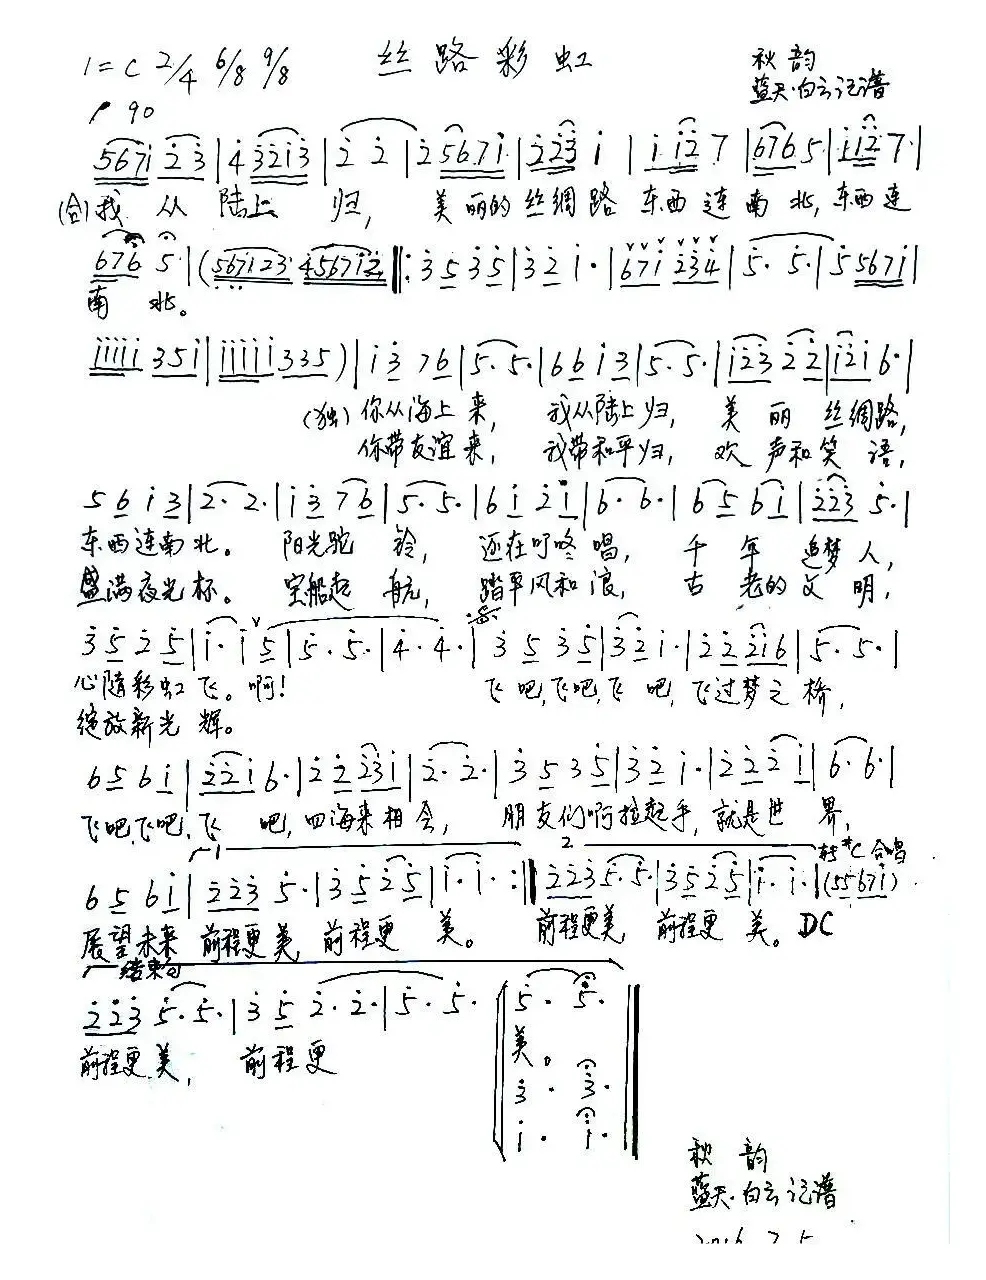 1=C 2/4 6/8 9/8 丝路彩虹 秋韵
蓝天·白云记谱
♩ 90
5671 2 3 | 4 3213 | 2 2 | 2 5671 | 223 1 | 1 12 7 | 676 5· | 112 7· |
(合)我 从 陆上 归, 美丽的丝绸路 东西连南北,东西连
676 5· | (5671 23· 45671 2 ‖: 3 5 3 5 | 3 2 1· | 671 234 | 5· 5· | 5 5671 |
南 北。
11111 351 | 11111 335) | 1 3 7 6 | 5· 5· | 6 6 1 3 | 5· 5· | 123 2 2 | 121 6· |
(独)你从海上来, 我从陆上归, 美 丽 丝绸路,
你带友谊来, 我带和平归, 欢 声和笑 语,
5 6 1 3 | 2· 2· | 1 3 7 6 | 5· 5· | 6 1 2 1 | 6· 6· | 6 5 6 1 | 223 5· |
东西连南北。 阳光驼 铃, 还在叮咚唱, 千 年 追梦人,
盛满夜光杯。 宝船起 航, 踏平风和浪, 古 老的文明,
3 5 2 5 | 1· 1 5 | 5· 5· | 4· 4· | 3 5 3 5 | 32 1· | 2 2 216 | 5· 5· |
心随彩虹飞。啊! 飞吧,飞吧,飞 吧,飞过梦之桥,
绽放新光 辉。
6 5 6 1 | 221 6· | 2 2 231 | 2· 2· | 3 5 3 5 | 3 2 1· | 2 2 2 1 | 6· 6· |
飞吧,飞吧,飞 吧,四海来相会, 朋友们啊拉起手,就是世 界,
1 2 转#C合唱
6 5 6 1 | 223 5· | 3 5 2 5 | 1· 1· :‖ 223 5· 5· | 3 5 2 5 | 1· 1· | (55671)
展望未来 前程更美,前程更 美。 前程更美, 前程更 美。DC
结束句
223 5· 5· | 3 5 2· 2· | 5· 5· | 5· 5· ‖
前程更美, 前程更 美。
3· 3·
1· 1·
秋韵
蓝天·白云记谱